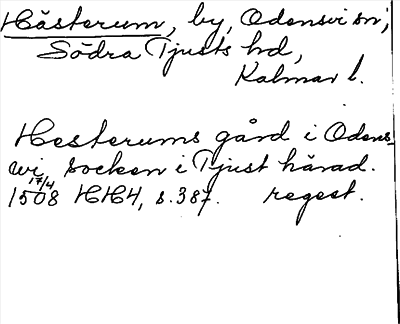 Hästerum, by, Odensvi sn,
Södra Tjusts hd,
Kalmar l.
Hesterums gård i Odens-
wi socken i Tjust härad.
17/4
1508 HH4, s. 387. regest.